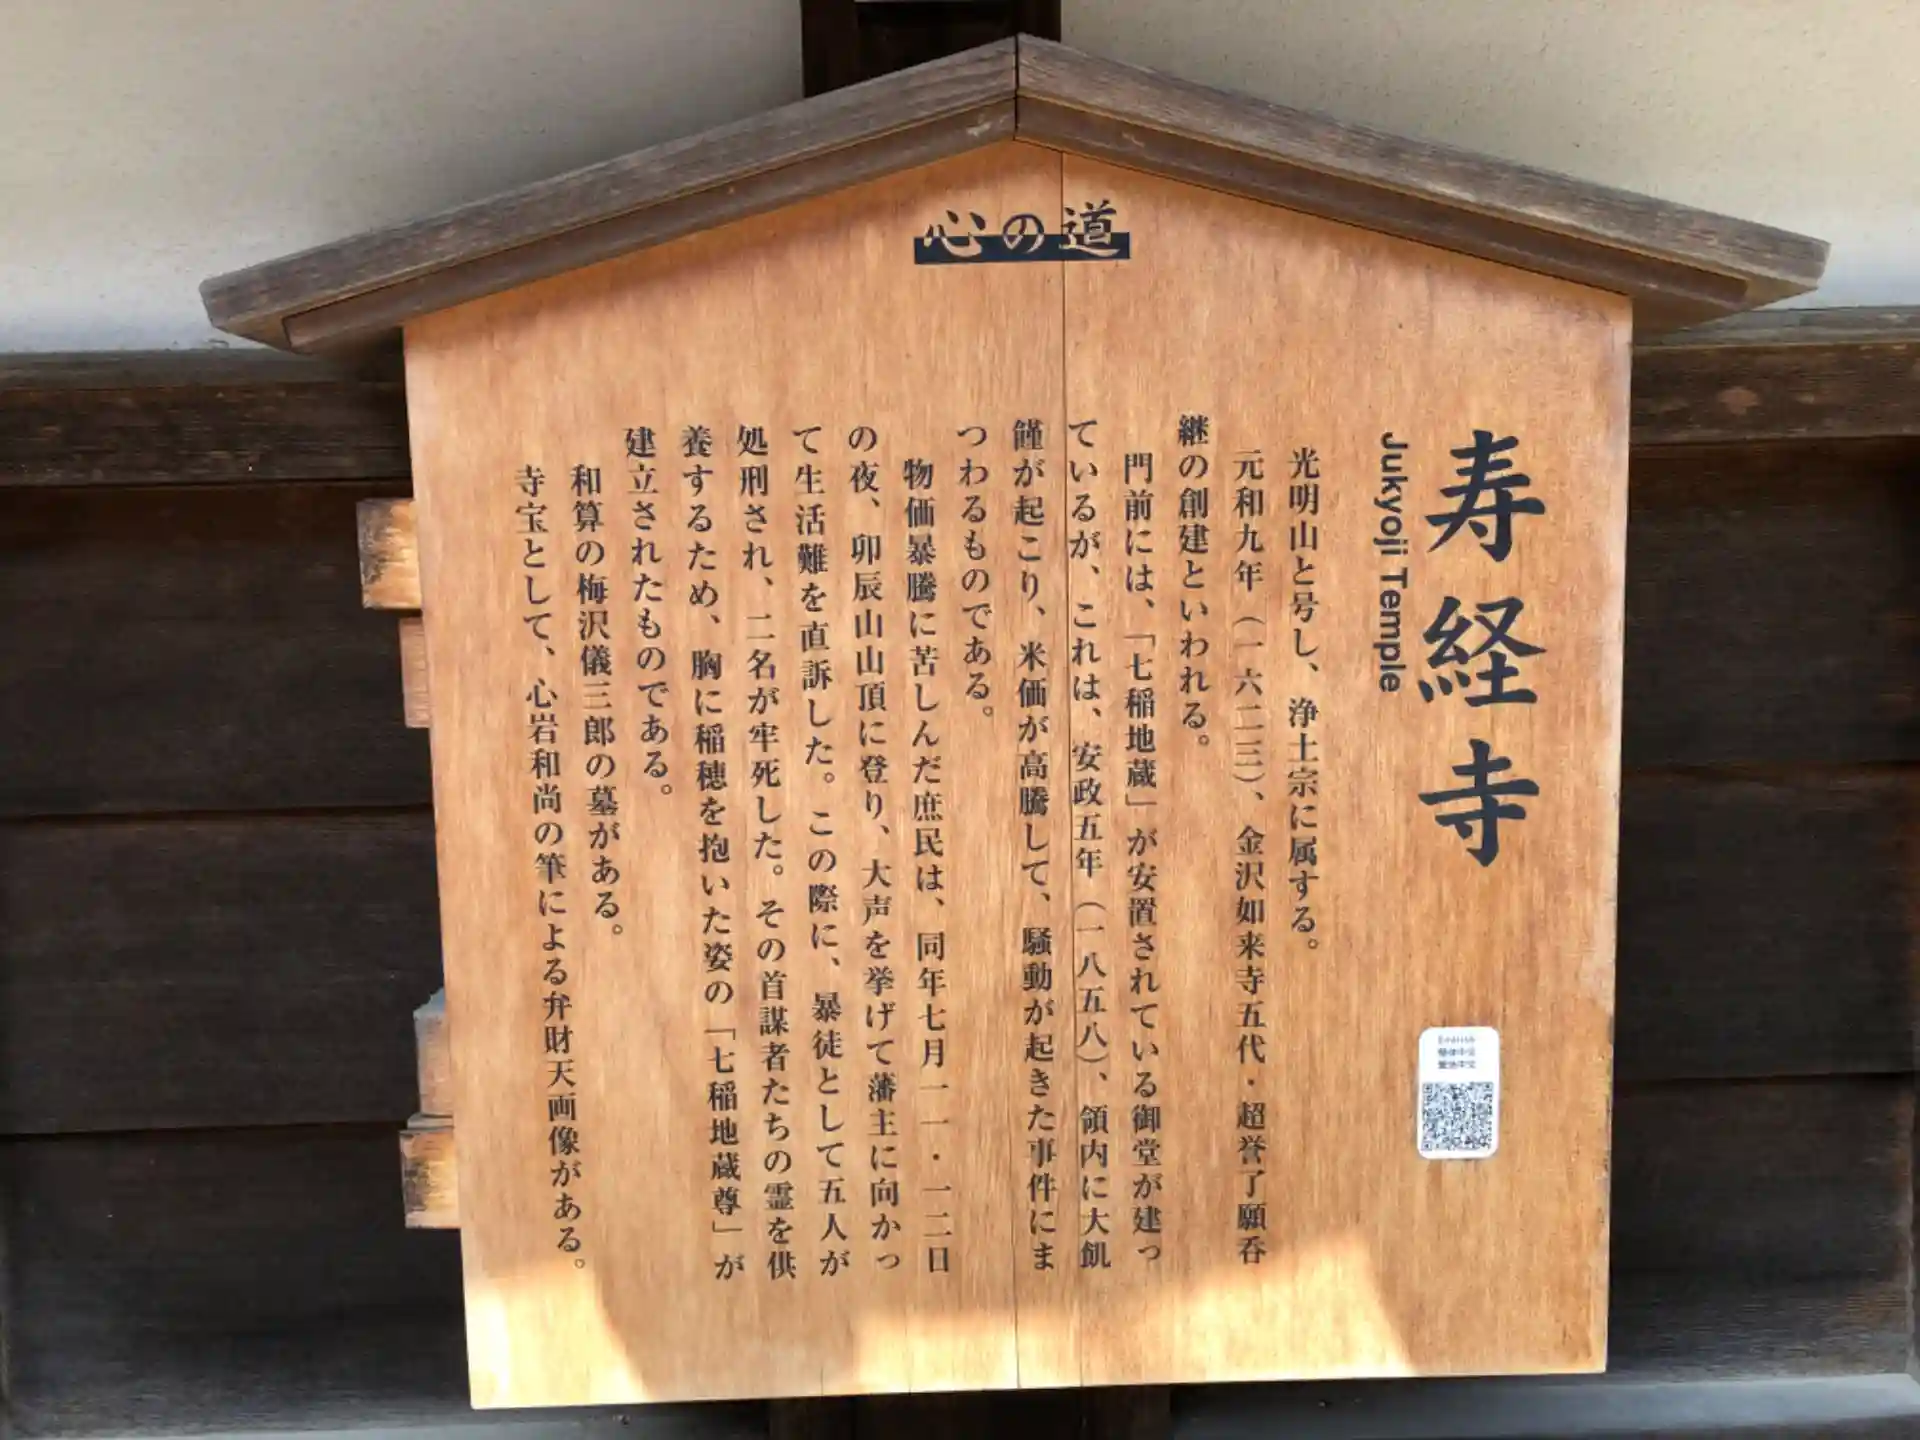 心の道
寿経寺
Jukyoji Temple
光明山と号し、浄土宗に属する。
元和九年（一六二三）、金沢如来寺五代・超誉了願呑
継の創建といわれる。
門前には、「七稲地蔵」が安置されている御堂が建っ
ているが、これは、安政五年（一八五八）、領内に大飢
饉が起こり、米価が高騰して、騒動が起きた事件にま
つわるものである。
物価暴騰に苦しんだ庶民は、同年七月一一・一二日
の夜、卯辰山山頂に登り、大声を挙げて藩主に向かっ
て生活難を直訴した。この際に、暴徒として五人が
処刑され、二名が牢死した。その首謀者たちの霊を供
養するため、胸に稲穂を抱いた姿の「七稲地蔵尊」が
建立されたものである。
和算の梅沢儀三郎の墓がある。
寺宝として、心岩和尚の筆による弁財天画像がある。
English
简体中文
繁体中文